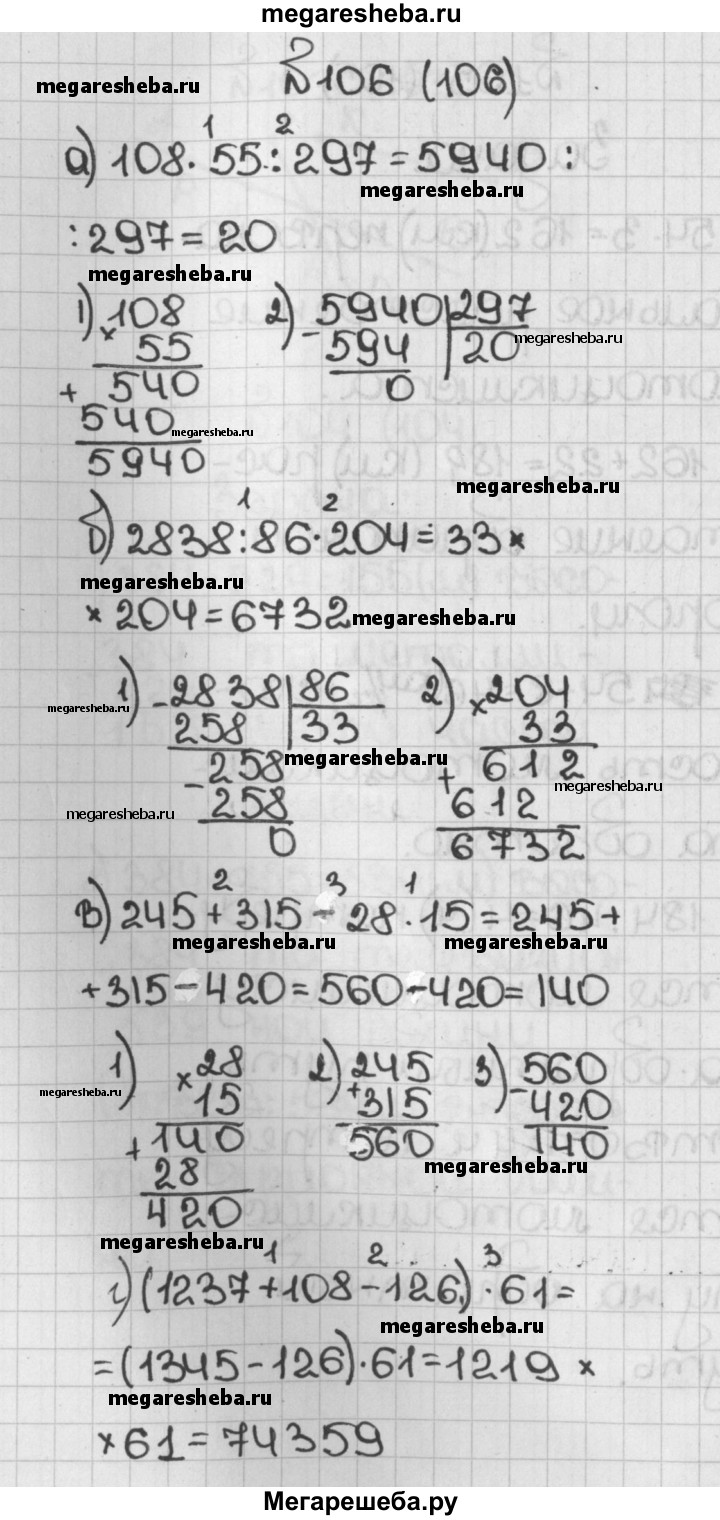 megaresheba.ru
№106 (106)
megaresheba.ru
1 2
а) 108·55:297=5940:
megaresheba.ru
:297=20
megaresheba.ru
1) 108
×
55
+ 540
540
5940
megaresheba.ru
2) 5940 297
- 594 20
0
megaresheba.ru
megaresheba.ru
1 2
б) 2838:86·204=33×
megaresheba.ru
×204=6732
megaresheba.ru
1) -2838 86
258 33
-258
258
0
megaresheba.ru
megaresheba.ru
megaresheba.ru
2) ×204
33
+ 612
612
6732
megaresheba.ru
2 3 1
в) 245+315-28·15=245+
megaresheba.ru megaresheba.ru
+315-420=560-420=140
1) ×28
15
+140
28
420
megaresheba.ru
2) 245
+315
560
3) -560
420
140
megaresheba.ru
megaresheba.ru
1 2 3
г) (1237+108-126)·61=
megaresheba.ru
=(1345-126)·61=1219×
megaresheba.ru
×61=74359
Мегарешеба.ру